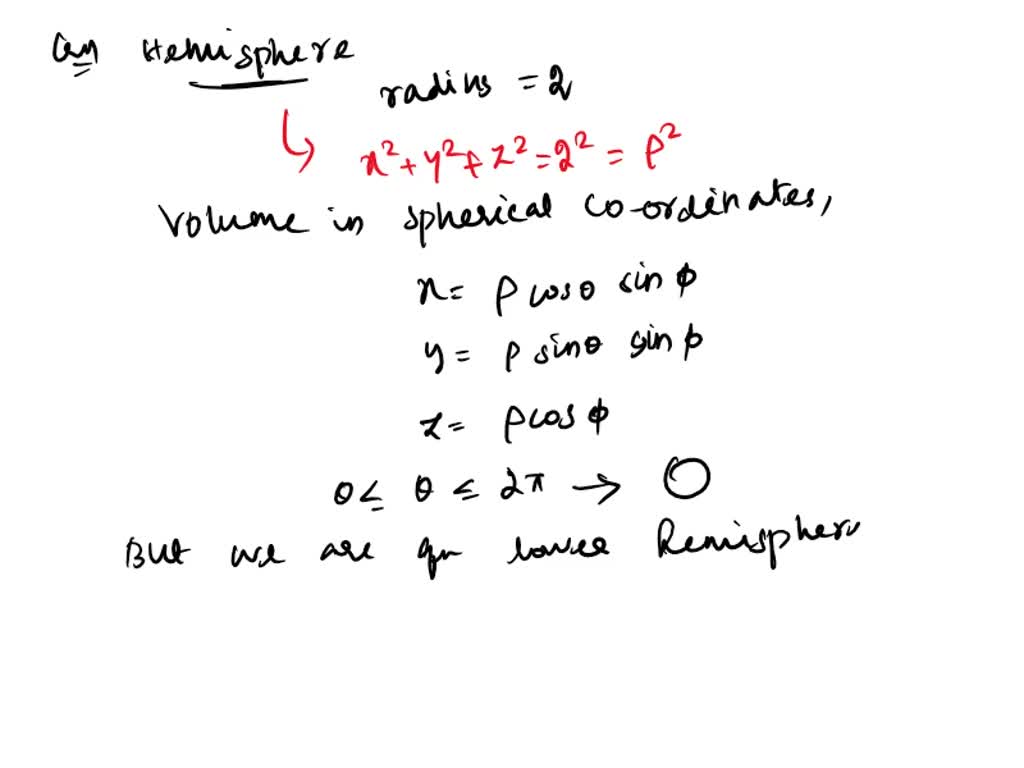 Hemisphere
radius = 2
x²+y²+z²=2²=ρ²
Volume in spherical co-ordinates,
x= ρ cosθ sin ϕ
y= ρ sinθ sin ϕ
z= ρ cos ϕ
0≤ θ ≤ 2π →
But we are lower Hemisphere